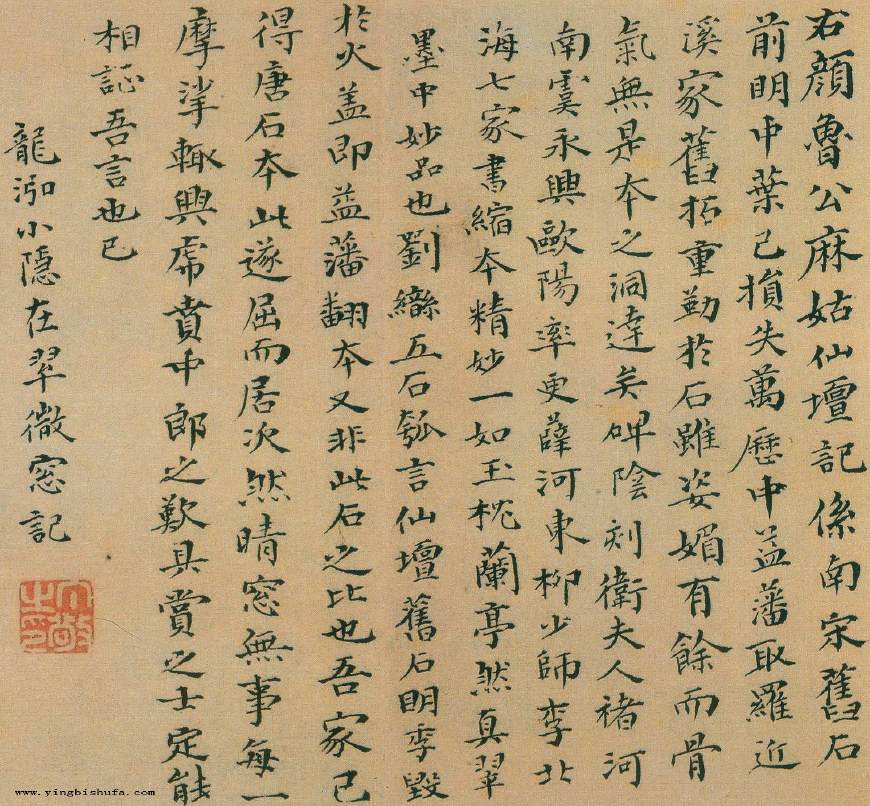 右顏魯公麻姑仙壇記係南宋舊石
前明中葉已損失萬曆中益藩取羅近
溪家舊拓重勒於石雖姿媚有餘而骨
氣無是本之洞達矣碑陰刻衛夫人褚河
南虞永興歐陽率更薛河東柳少師李北
海七家書縮本精妙一如玉枕蘭亭然真翠
墨中妙品也劉纞五石瓠言仙壇舊石明季毀
於火蓋即益藩翻本又非此石之比也吾家已
得唐石本此遂屈而居次然晴窓無事每一
摩挲輒興虎賁中郎之歎具賞之士定能
相證吾言也已
龍泓小隱在翠微窓記
www.yingbishufa.com